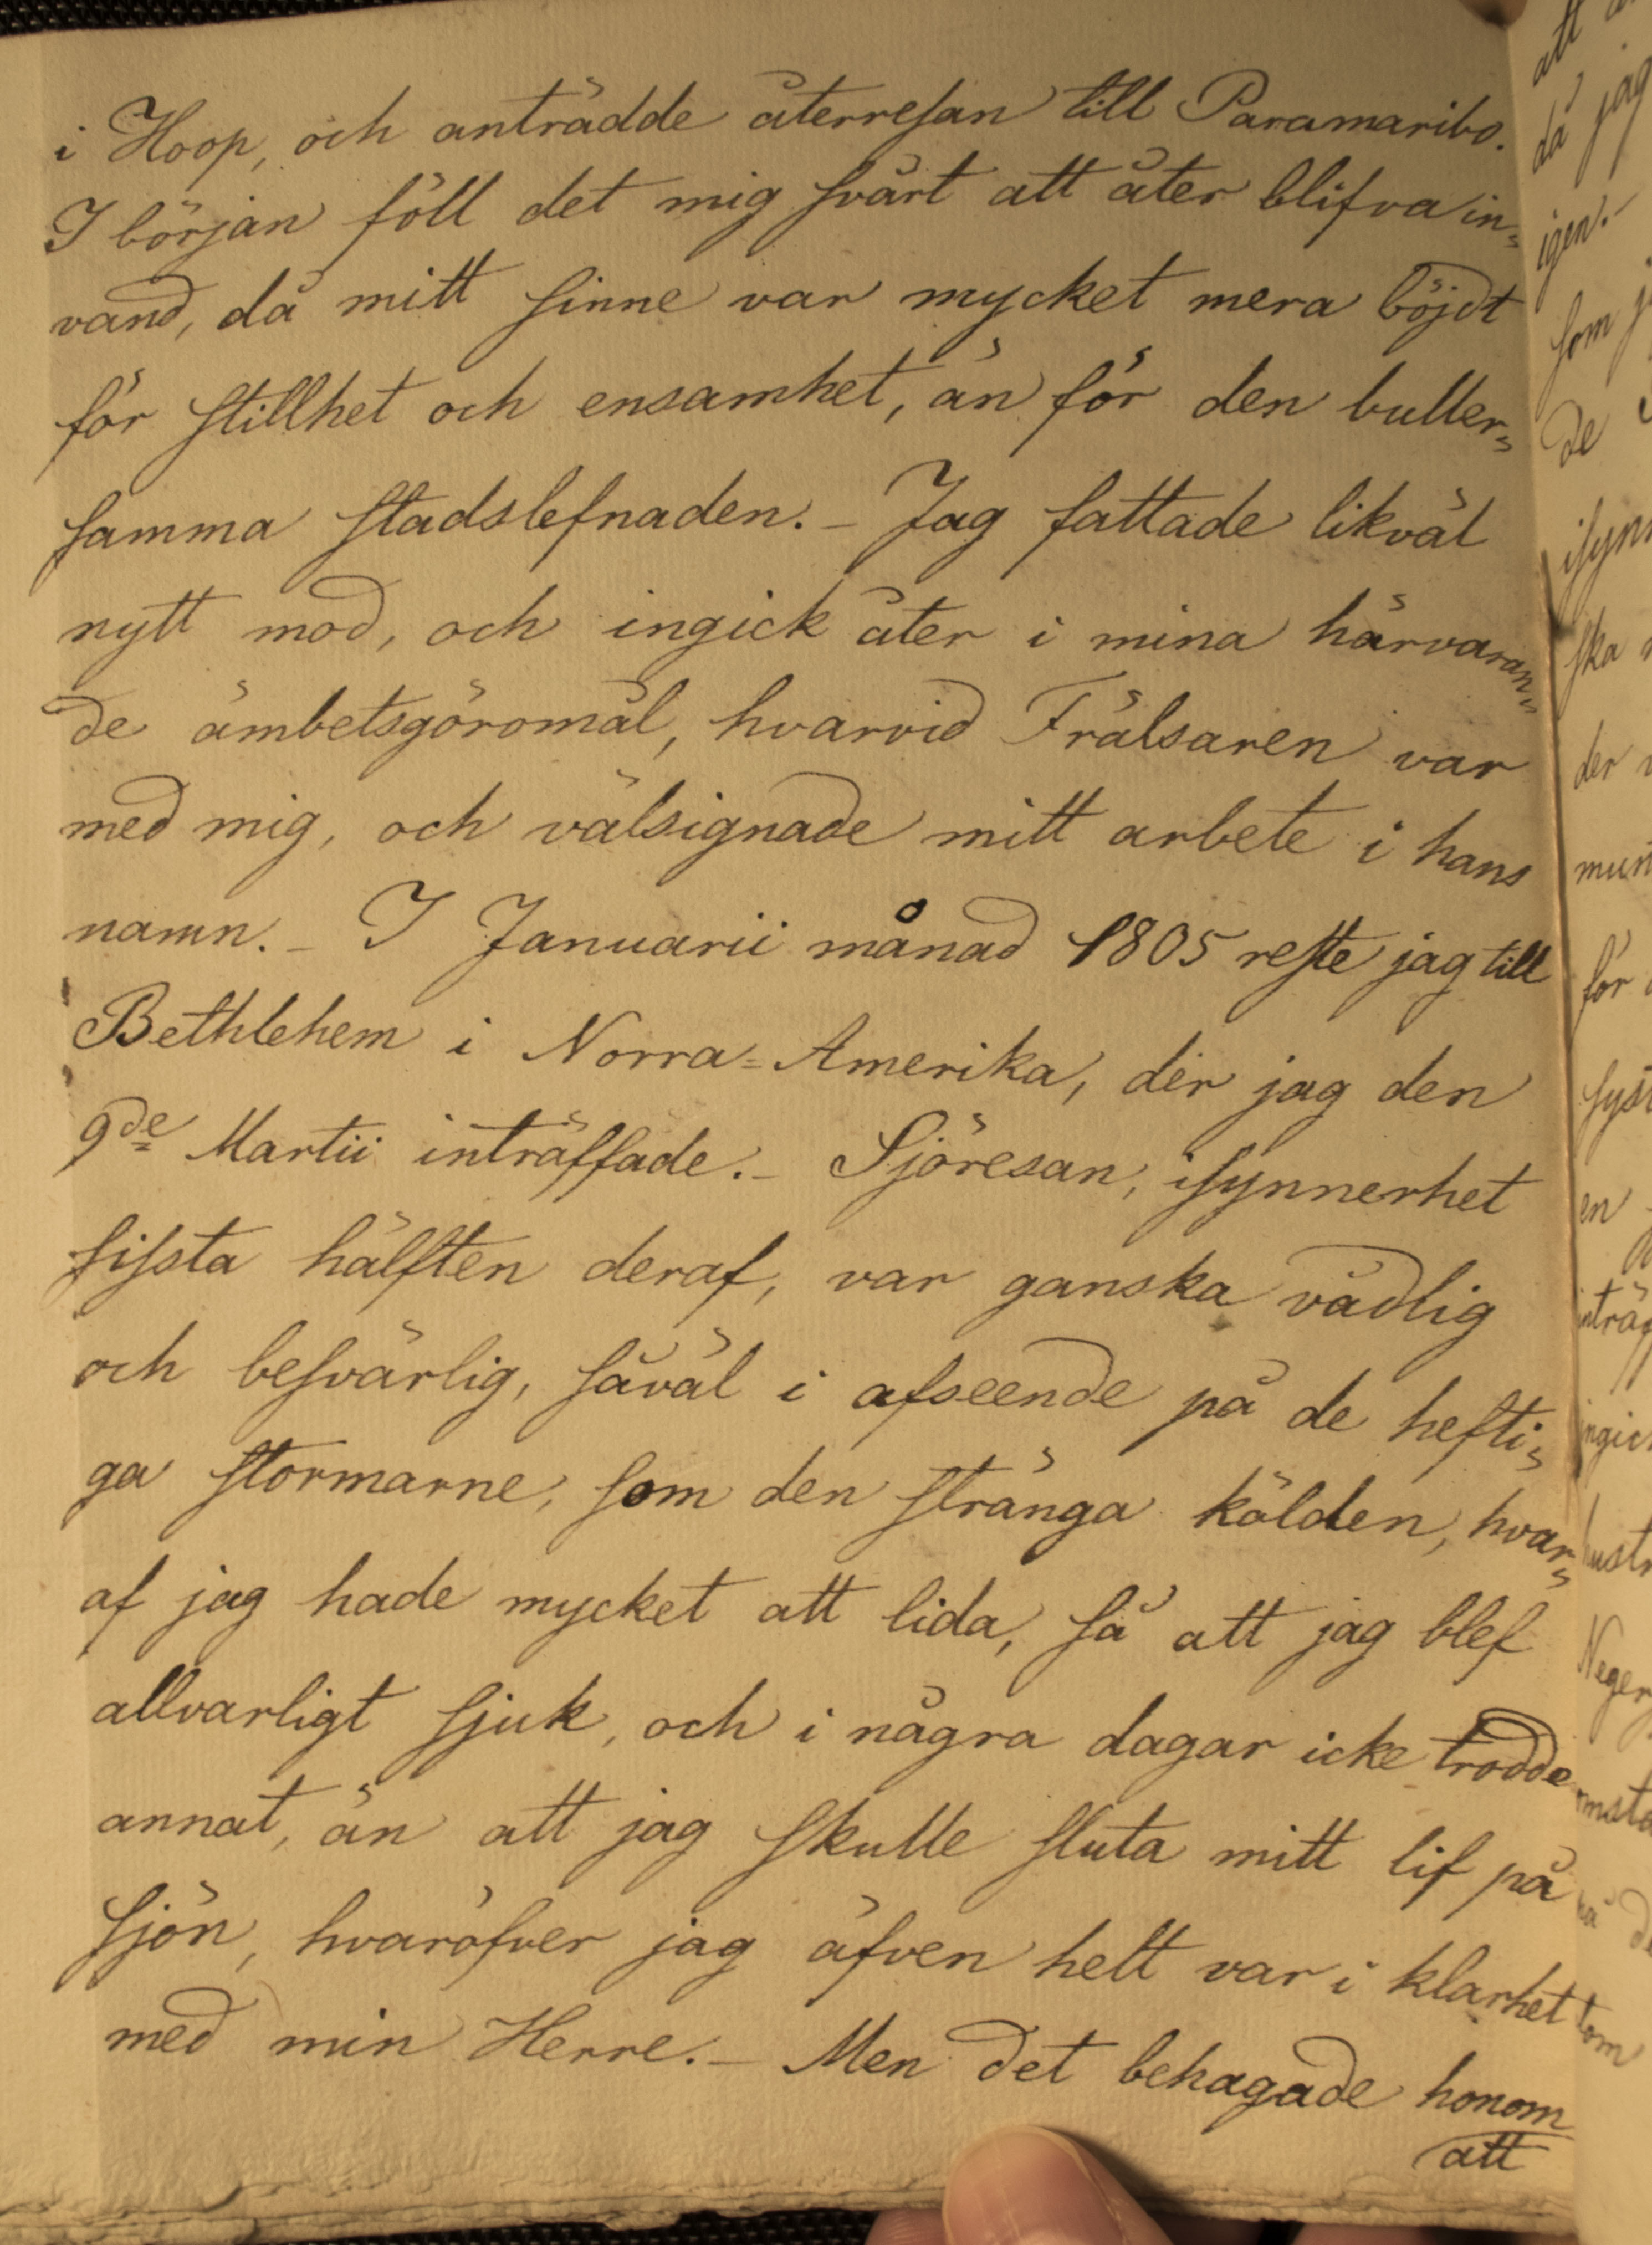 i Hoop, och anträdde återresan till Paramaribo.
I början föll det mig svårt att åter blifva in=
vand, då mitt sinne var mycket mera böjdt
för stillhet och ensamhet, än för den buller=
samma stadslefnaden. – Jag fattade likväl
nytt mod, och ingick åter i mina härvaran=
de ämbetsgöromål, hvarvid Frälsaren var
med mig, och välsignade mitt arbete i hans
namn. – I Januarii månad 1805 reste jag till
Bethlehem i Norra=Amerika, der jag den
9de Martii inträffade. – Sjöresan, isynnerhet
sissta hälften deraf, var ganska vådlig
och besvärlig, såväl i afseende på de hefti=
ga stormarne, som den stränga kölden, hvar=
af jag hade mycket att lida, så att jag blef
allvarligt sjuk, och i några dagar icke trodde
annat, än att jag skulle sluta mitt lif på
sjön, hvaröfver jag äfven helt var i klarhet
med min Herre. – Men det behagade honom
att
då jag
igen.
som
de
ska
der
för
en